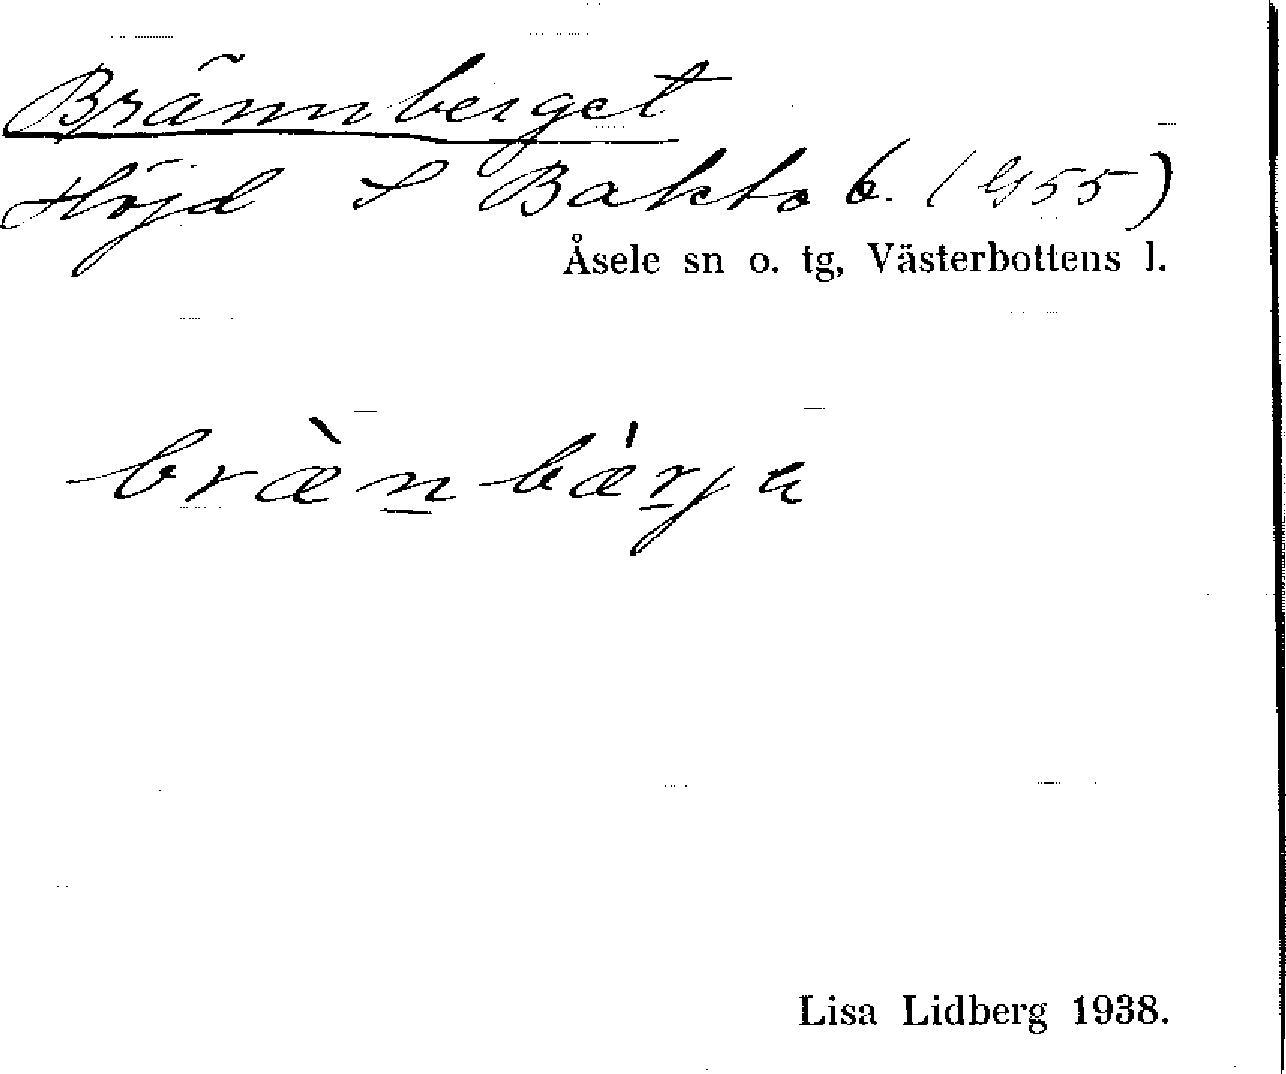 Brännberget
Höjd S Bakto b. (G 55)
Åsele sn o. tg, Västerbottens l.
bræ̀n̲bæ̍r̲ja
Lisa Lidberg 1938.